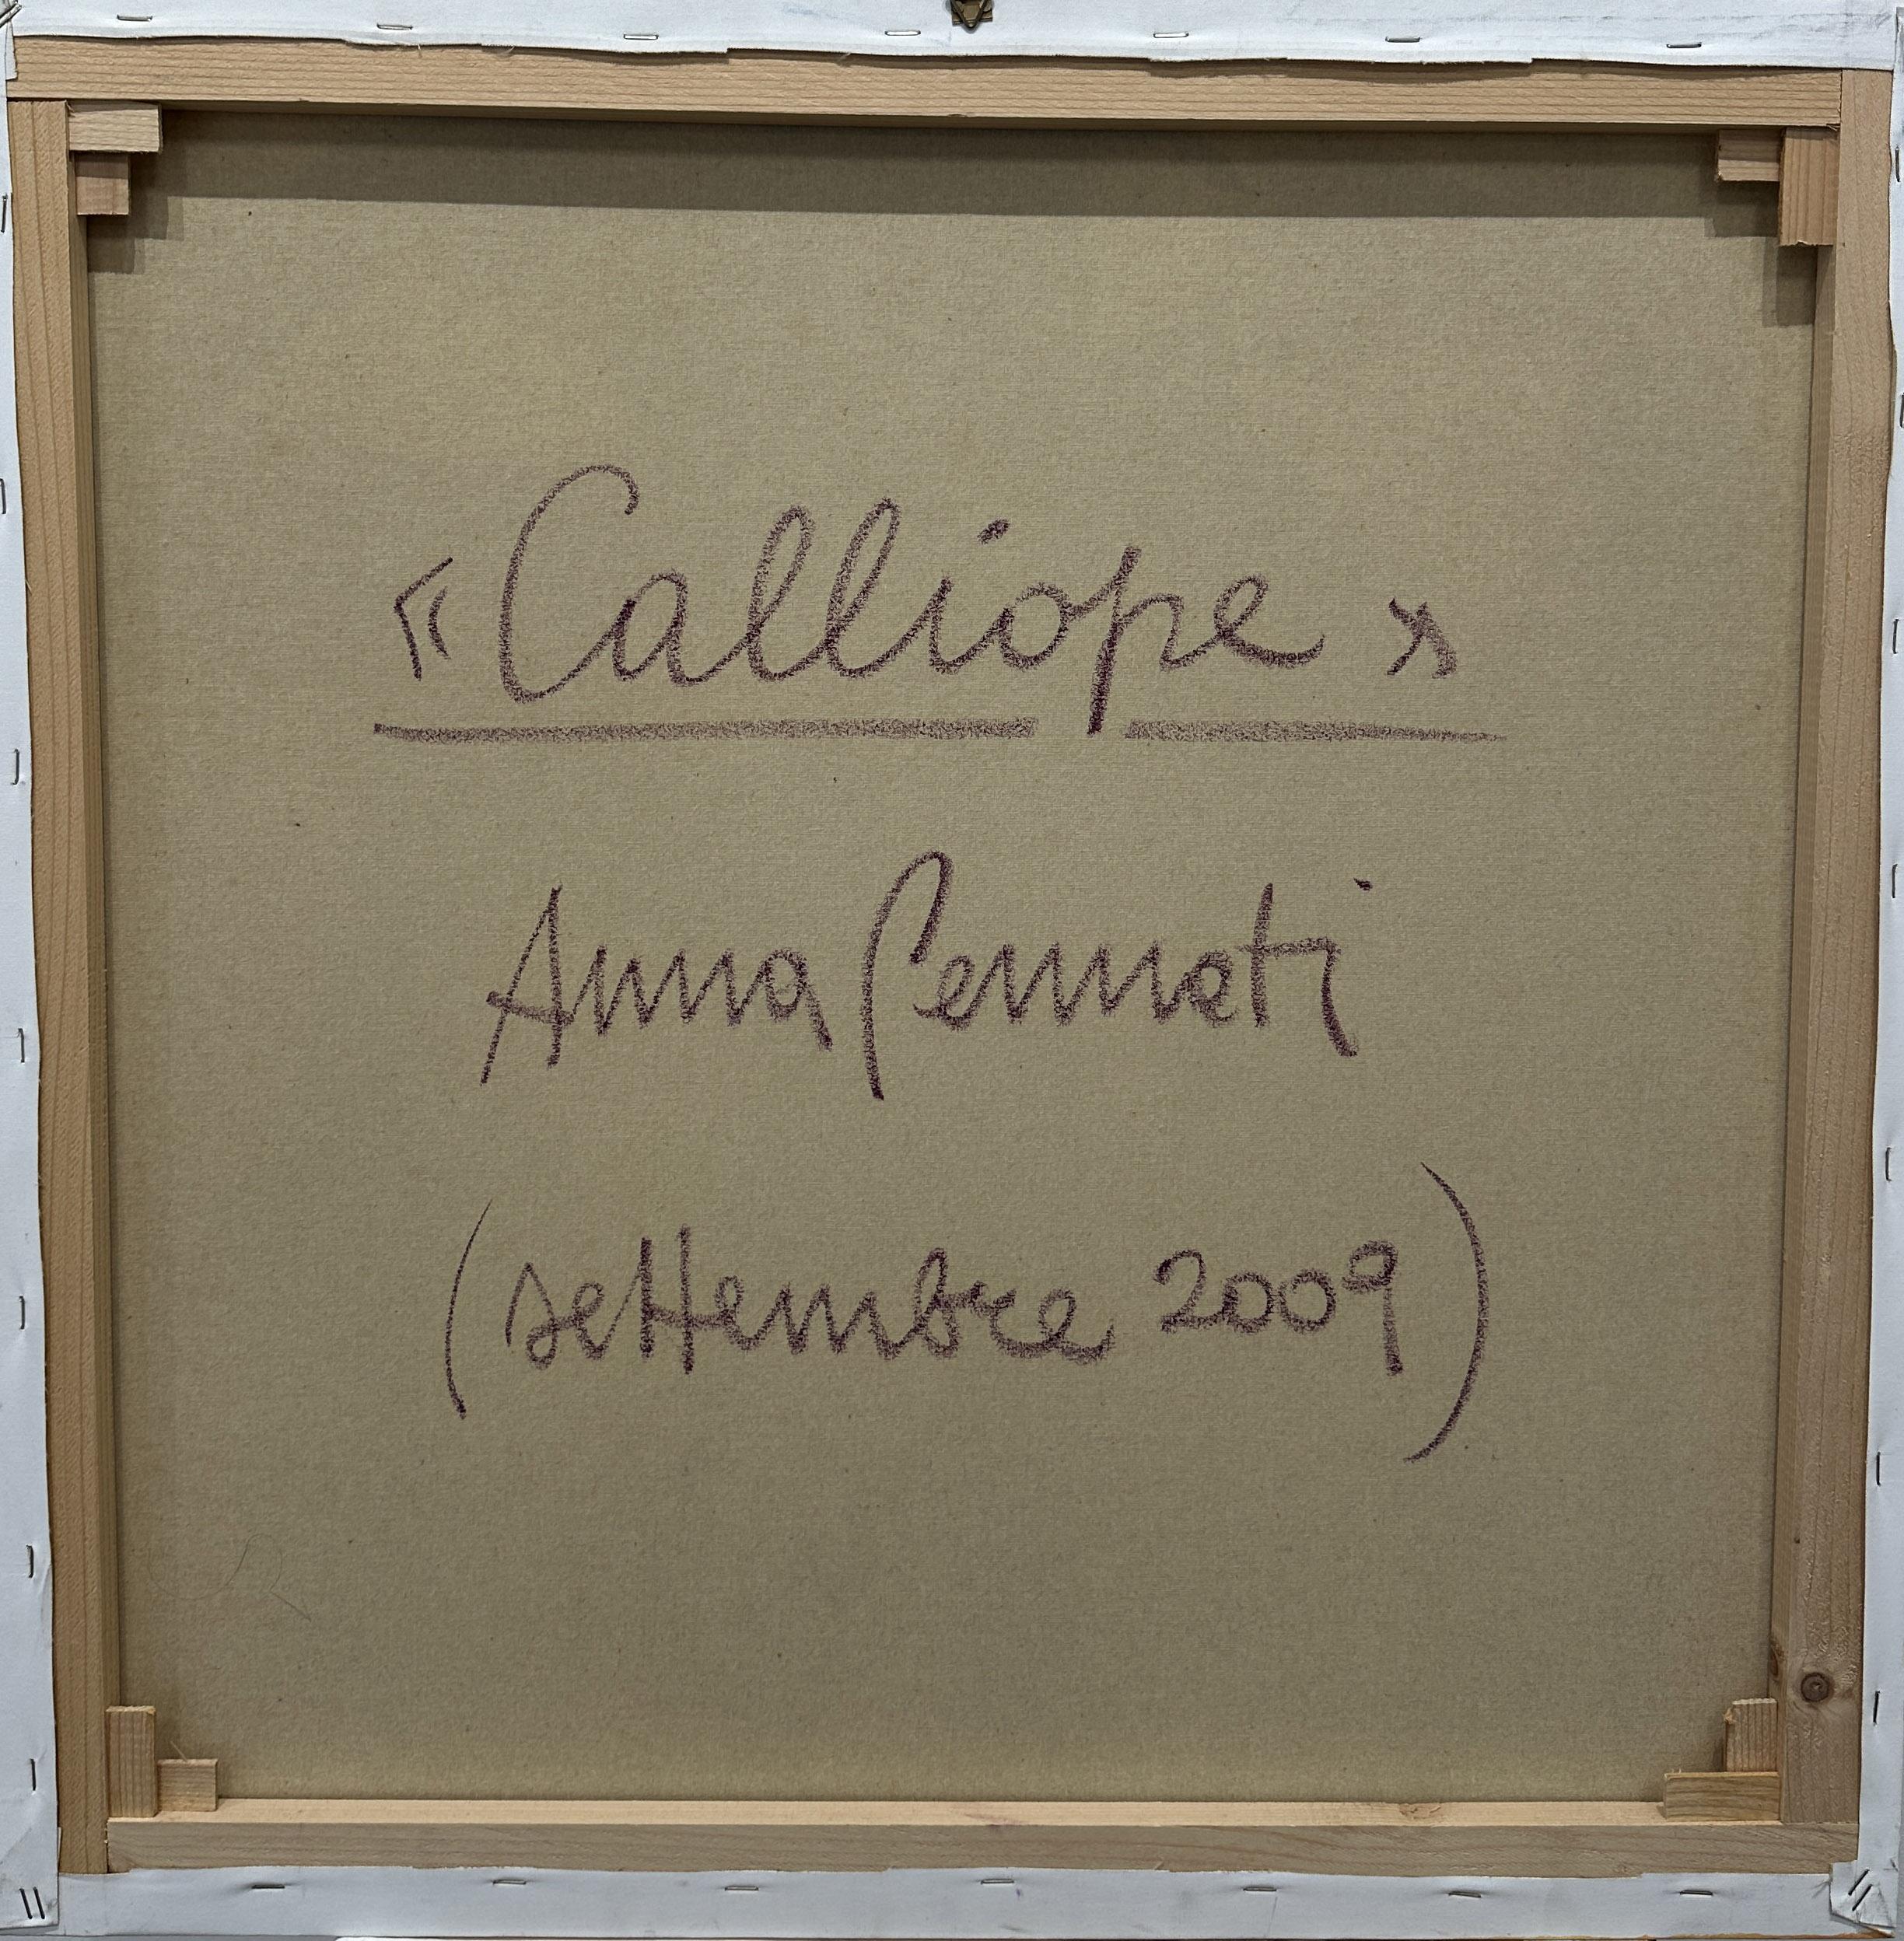 « Calliope »
Anna Pennati
(settembre 2009)